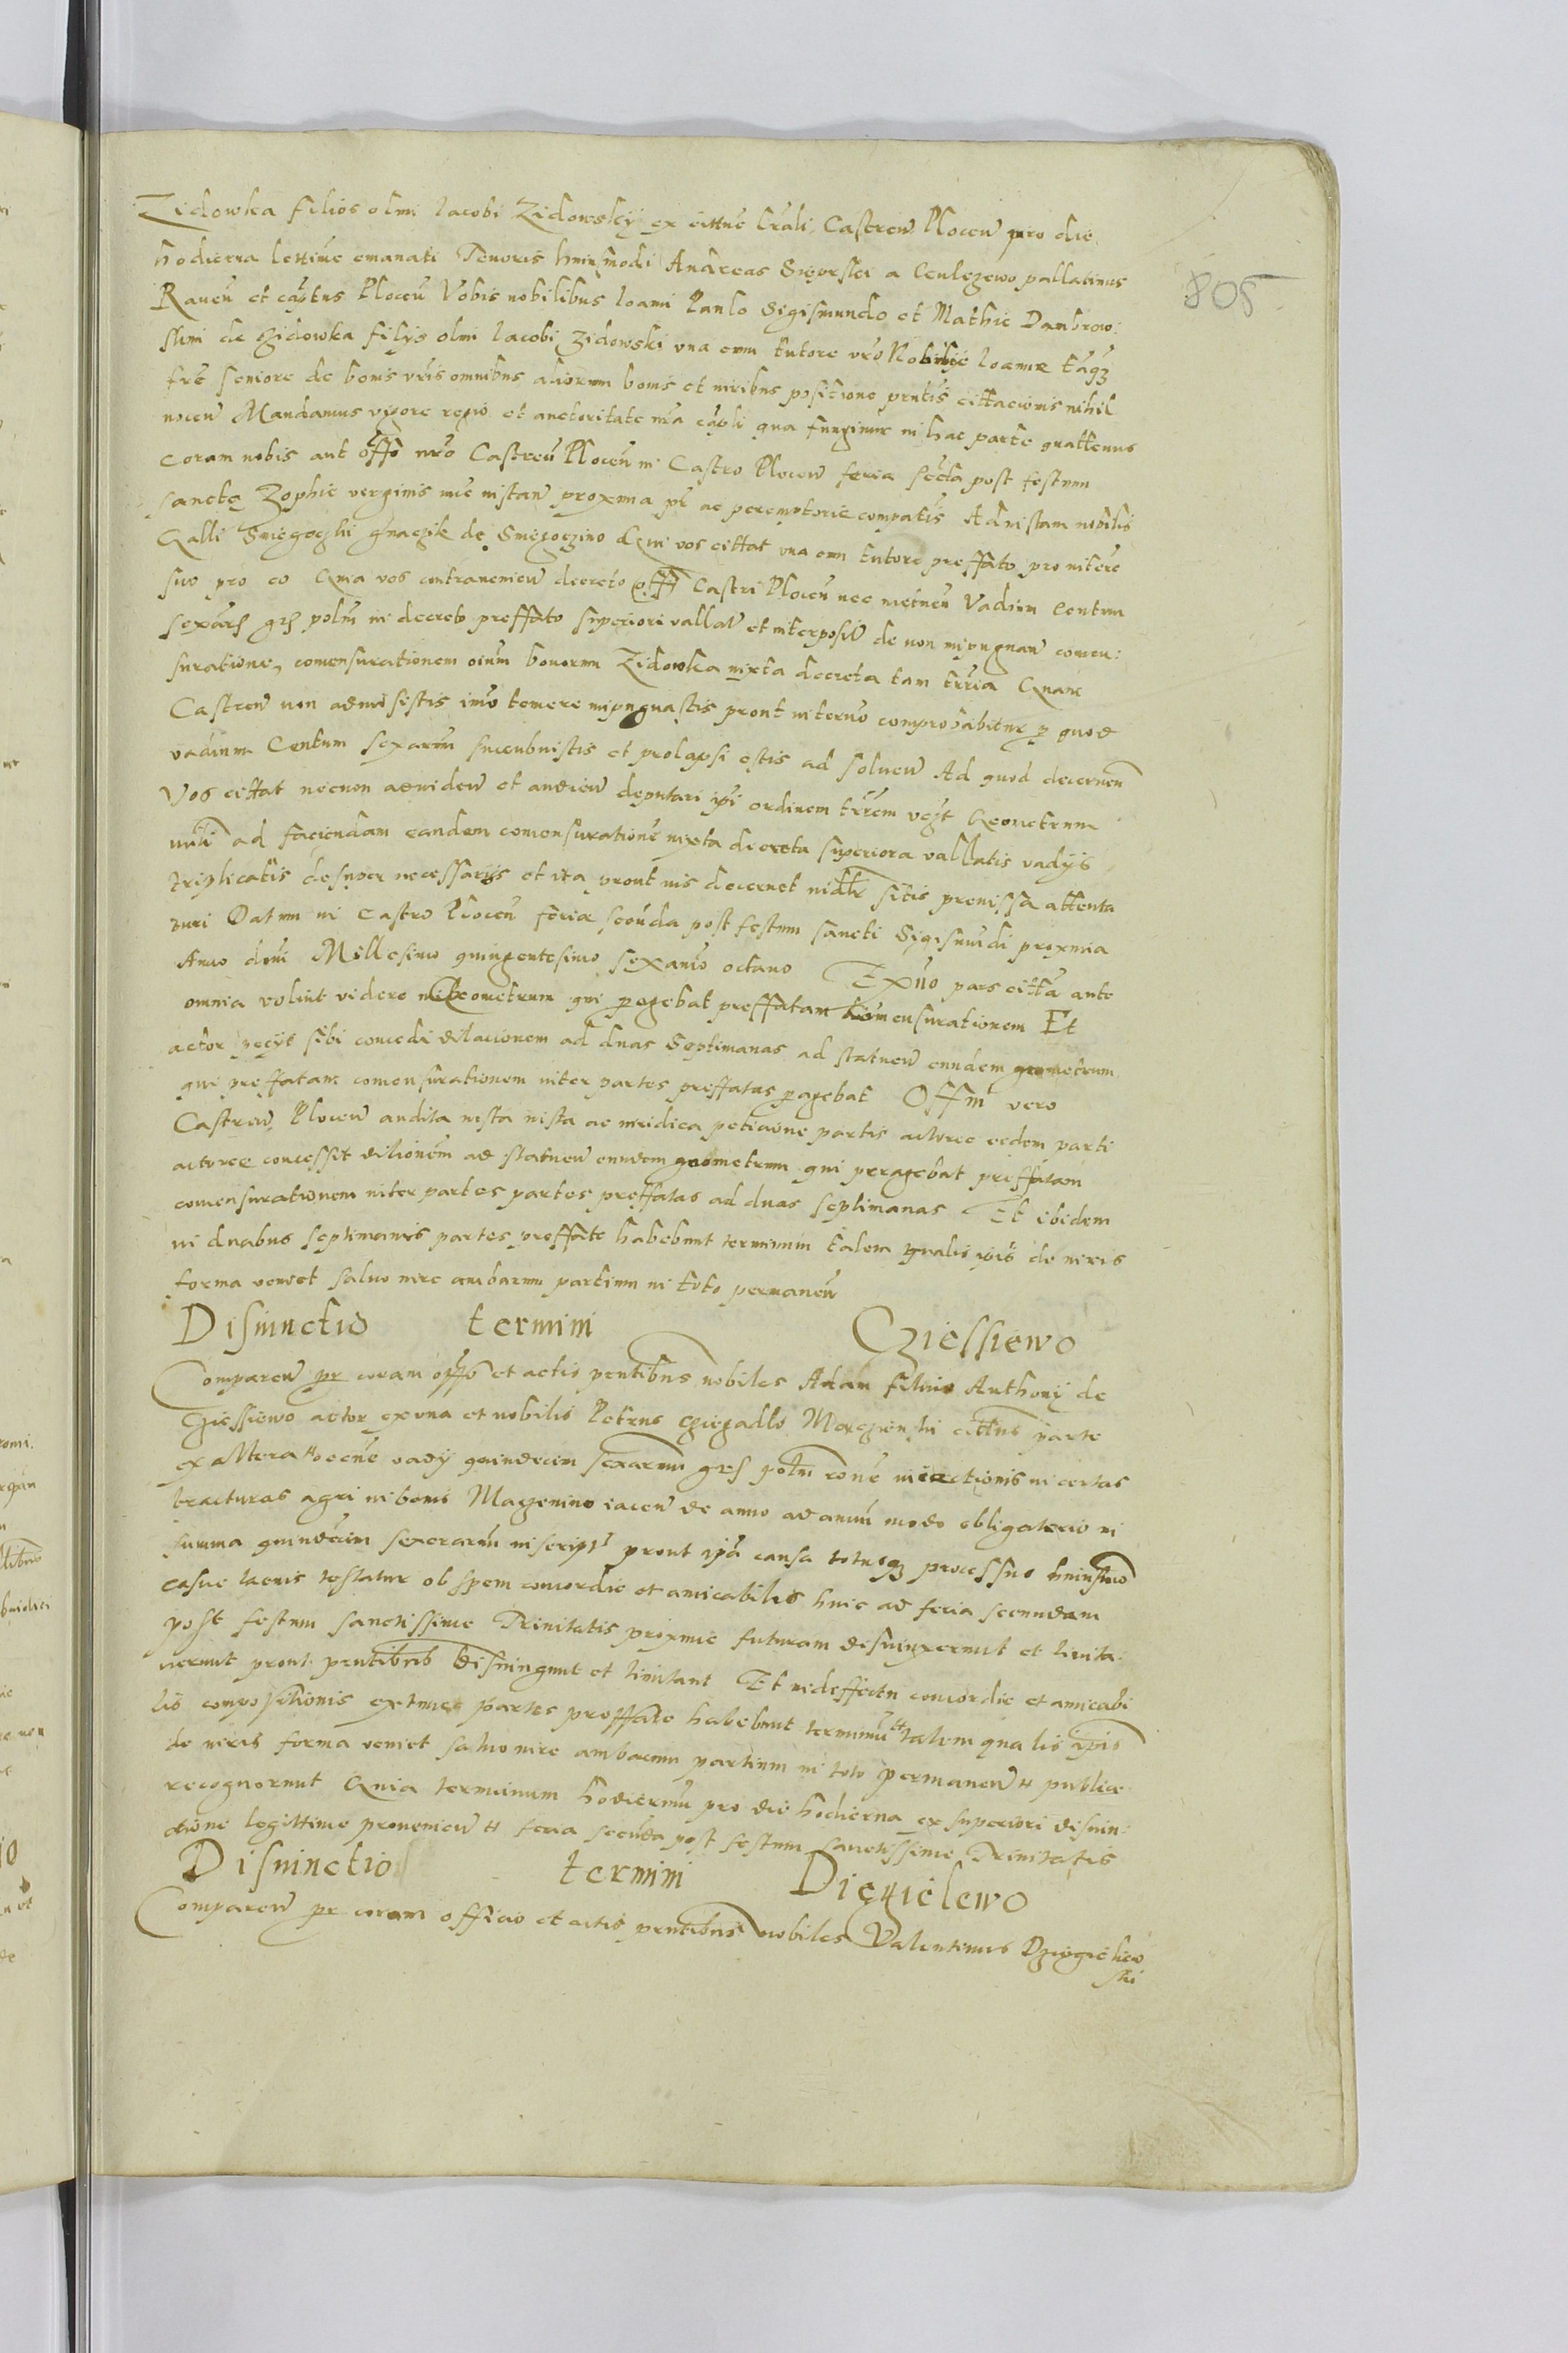 805
Zidowka filios olmi Iacobi Zidowskij ex cittne lrali Castren Plocen pro die
hodierna lettime emanati Tenoris huiusmodi Andreas Sieprski a Gulczewo pallatinus
Raven et captns Plocen Vobis nobilibus Ioanni Paulo Sigismundo et Mathie Dambrow:
skim de Zidowka filijs olmi Iacobi Zidowski una cum tutore vro Nobili Ioanne tanqz
fre seniore de bonis vris omnibus aliorum bonis et iuribus positione pntis cittacionis nihil
nocen Mandamus vigore regio et auctoritate nra capli qua fungimur in hac parte quattenus
coram nobis aut offo nro Castren Plocen in Castro Plocen feria secta post festum
sancte Zophie verginis nuc instan proxima pr ac peremptorie compatis Ad instam nobilis
Galli Smiegoczki gnaczik de Smiegoczino Qui vos cittat una cum tutore preffato pro nitere
suo pro eo Quia vos contravenien decreto offi Castri Plocen nec metuen Vadium Centum
sexars grs polni in decreto preffato superiori vallat et interposit de non inpugnan comen:
suratione, comensurationem oium bonorum Zidowka iuxta decreta tam trria Quam
Castren non admisistis imo temere inpugnastis prout in termo comprobabitur p quod
vadium Centum sexarm succubuistis et prolapsi estis ad soluen Ad quod decernen
Vos cittat necnon ad viden et audien deputari ipi ordinem trrem vegt Geometrum
ad faciendam eandem comensuratione iuxta decreta superiora vallatis vadijs
triplicatis desuper necessarijs et ita prout ius decernet sitis premissa attenta
turi Datum in Castro Plocen feria secunda post festum sancti Sigismundi proxima
Anno dni Millesimo quingentesimo sexamo octavo Ex quo pars citta ante
omnia voluit videre Geometrum qui pagebat preffatam Comensurationem Et
actor peciit sibi concedi dilacionem ad duas Septimanas ad statuen eundem geometrum
qui preffatam comensurationem inter partes preffatas pagebat Offm vero
Castren Plocen audita iusta iusta ac iuridica peticione partis actoree eedem parti
actoree concessit dilionem ad statuen eundem geometrum qui peragebat priffatam
comensurationem inter partes partes preffatas ad duas septimanas Et ibidem
in duabus septimanis partes preffate habebunt terminum talem qualis ipis de iuris
forma veniet salvo iure ambarum partium in toto permanen
Disiunctio termini Cziessiewo
Comparen pr coram offo et actis pentibus nobiles Adam filius Anthonij de
Cziessiewo actor ex una et nobilis Petrus Cziegadlo Maczienski cittus parte
ex altera occne vadij quindecim sexarum grs polni rone intercessionis in certas
tracturas agri in bonis Maczenino iacen de anno ad annu modo obligatorio in
summa quindecim sexerarum inscript prout ipa causa totusqz processus huiusmo
casue lacius testatur ob spem concordie et amicabilis huic ad feria secundam
post festum sanctissime Trinitatis proxime futuram desiuinxerunt et limita.
verunt prout pentibus disiungunt et limitant Et in deffectu concordie et amicabi
lis compositionis extunc partes preffate habebunt terminu talem qualis ipis
de iuris forma veniet salvo iure ambarum partium in toto permanen publice
recognorunt Quia terminum hodiernu pro die hodierna ex superiori disiun:
ctione legittime provenien feria secunda post festum sanctissime Trinitatis
Disiunctio termini Dzięgielewo
Comparen pr coram officio et actis pentibus nobiles Valentinus Dziegielew
ski